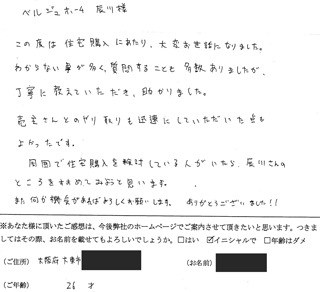 ベルジュホーム 辰川様
この度は住宅購入にあたり、大変お世話になりました。
わからない事が多く、質問することも多数ありましたが、
丁寧に教えていただき、助かりました。
売主さんとのやり取りも迅速にしていただいた点も
よかったです。
周囲で住宅購入を検討している人がいたら、辰川さんの
ところをすすめてみようと思います。
また何か機会があればよろしくお願いします。ありがとうございました!!
※あなた様に頂いたご感想は、今後弊社のホームページでご案内させて頂きたいと思います。つきま
してはその際、お名前を載せてもよろしいでしょうか。□はい ☑イニシャルで □年齢はダメ
(ご住所) 大阪府大東市 (お名前)
(ご年齢) 26 才